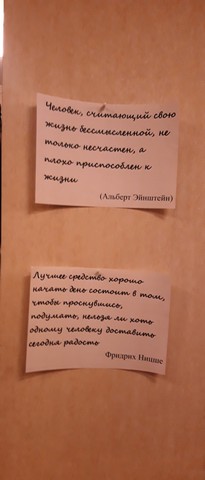 Человек, считающий свою
жизнь бессмысленной, не
только несчастен, а
плохо приспособлен к
жизни
(Альберт Эйнштейн)
Лучшее средство хорошо
начать день состоит в том,
чтобы проснувшись,
подумать, нельзя ли хоть
одному человеку доставить
сегодня радость
Фридрих Ницше